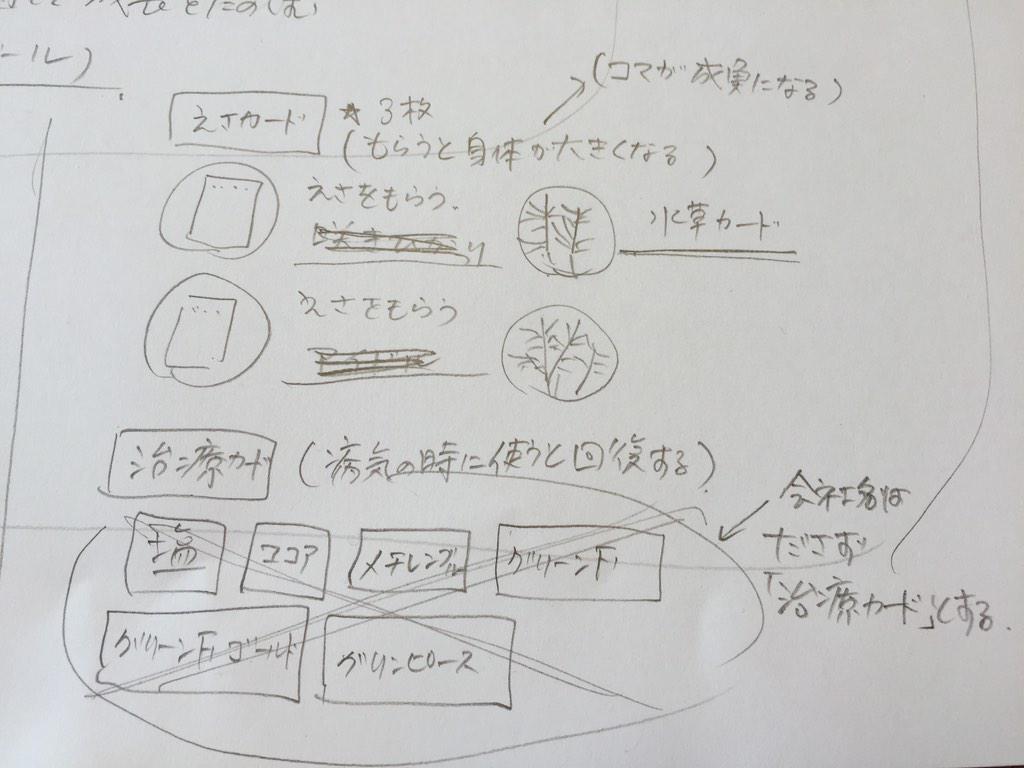 をたのしむ
ール)
(コマが成魚になる)
えさカード ★3枚
(もらうと身体が大きくなる)
えさをもらう.
水草カード
えさをもらう
治療カード (病気の時に使うと回復する)
会社名は
ださず
「治療カード」とする.
塩 ココア メチレンブルー グリーンF
グリーンFゴールド グリンピース